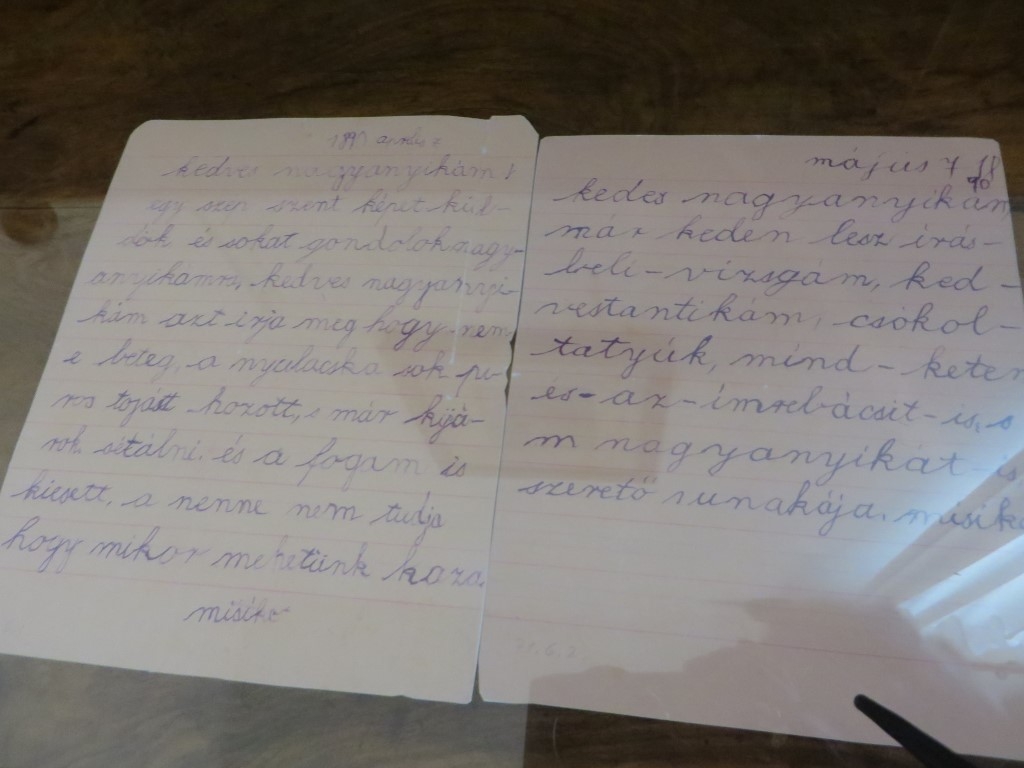 1891 aprilis 7
kedves nagyanyikám!
egy szen szent képet kül-
dök és sokat gondolok nagy-
anyikámra, kedves nagyanyi-
kám azt irja meg hogy nem
e beteg, a nyulacska sok pi-
ros tojast hozott, s már kijá-
rok sétálni és a fogam is
kiesett, a nenne nem tudja
hogy mikor mehetünk haza
misike
május 7
90
kedes nagyanyikám
már keden lesz irás-
beli-vizsgám, ked-
vestantikám, csókol-
tatyúk, mind-keten
és-az-imrebácsit-is, s
m nagyanyikát is
szerető unakája. misike